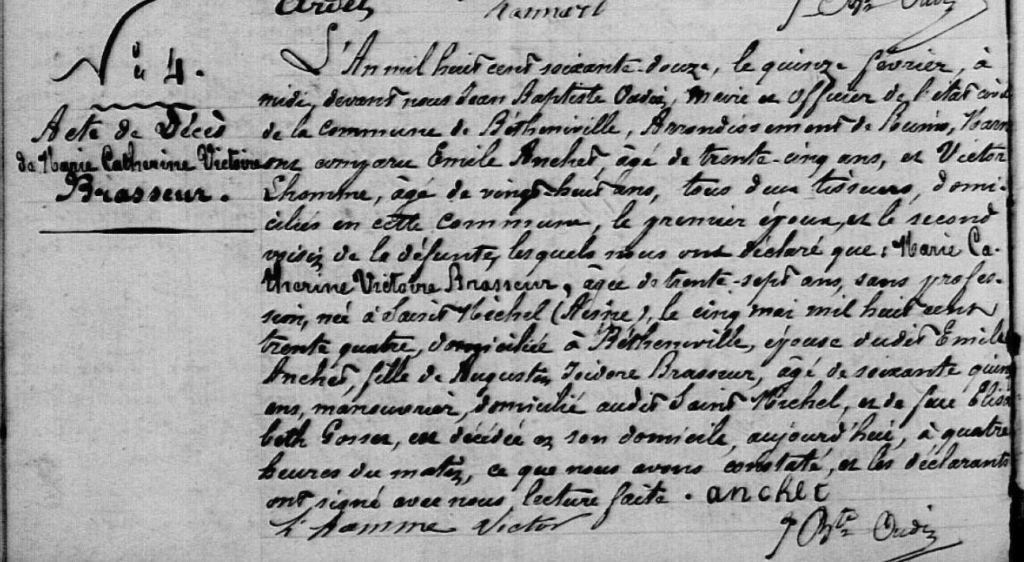 Ardet Hannart J Bte Oudin
N° 4.
Acte de Décès
de Marie Catherine Victoire
Brasseur.
L'An mil huit cent soixante-douze, le quinze février, à
midi, devant nous Jean Baptiste Oudin, Maire et Officier de l'état civil
de la Commune de Bétheniville, Arrondissement de Reims, Marne
ont comparu Emile Anchet, âgé de trente-cinq ans, et Victor
Lhomme, âgé de vingt-huit ans, tous deux tisseurs, domi-
ciliés en cette commune, le premier époux, et le second
voisin de la défunte, lesquels nous ont déclaré que : Marie Ca-
therine Victoire Brasseur, âgée de trente-sept ans, sans profes-
sion, née à Saint Michel (Aisne), le cinq mai mil huit cent
trente quatre, domiciliée à Bétheniville, épouse dudit Emile
Anchet, fille de Augustin Isidore Brasseur, âgé de soixante quinze
ans, manouvrier, domicilié audit Saint Michel, et de feue Elisa
beth Gosset, est décédée en son domicile, aujourd'hui, à quatre
heures du matin, ce que nous avons constaté, et les déclarants
ont signé avec nous lecture faite. anchet
L'hamme Victor J Bte Oudin